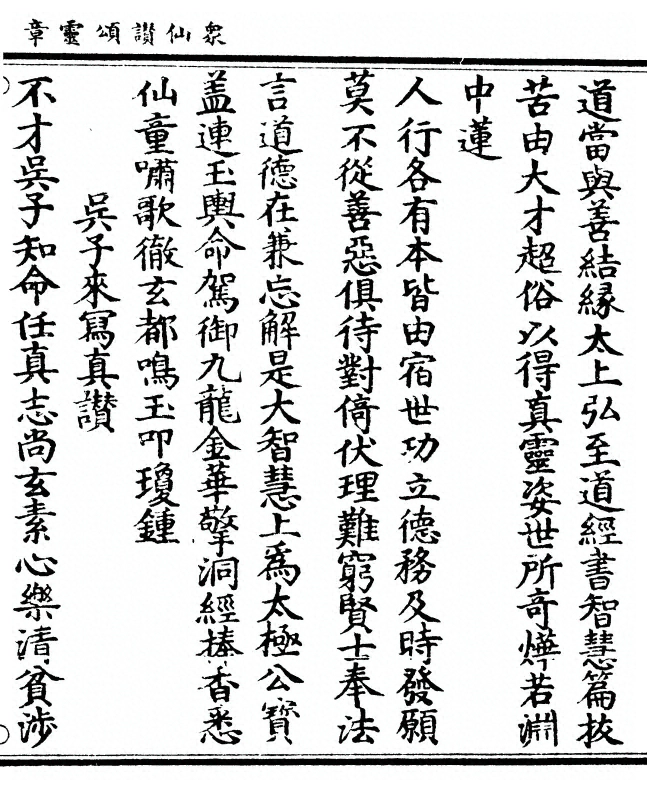 眾仙讃頌靈章
道當與善結緣太上弘至道經書智慧篇拔
苦由大才超俗以得真靈姿世所奇燁若淵
中蓮
人行各有本皆由宿世功立德務及時發願
莫不從善惡俱待對倚伏理難窮賢士奉法
言道德在兼忘解是大智慧上為太極公寶
盖連玉輿命駕御九龍金華擎洞經捧香悉
仙童嘯歌徹玄都鳴玉叩瓊鍾
吳子來寫真讃
不才吳子知命任真志尚玄素心樂清貧涉